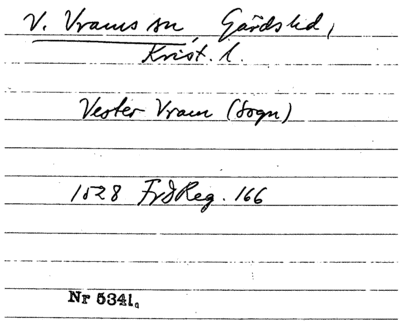 V. Vrams sn, Gärds hd,
Krist. l.
Vester Vram (sogn)
1528 FrdReg. 166
Nr 5341.